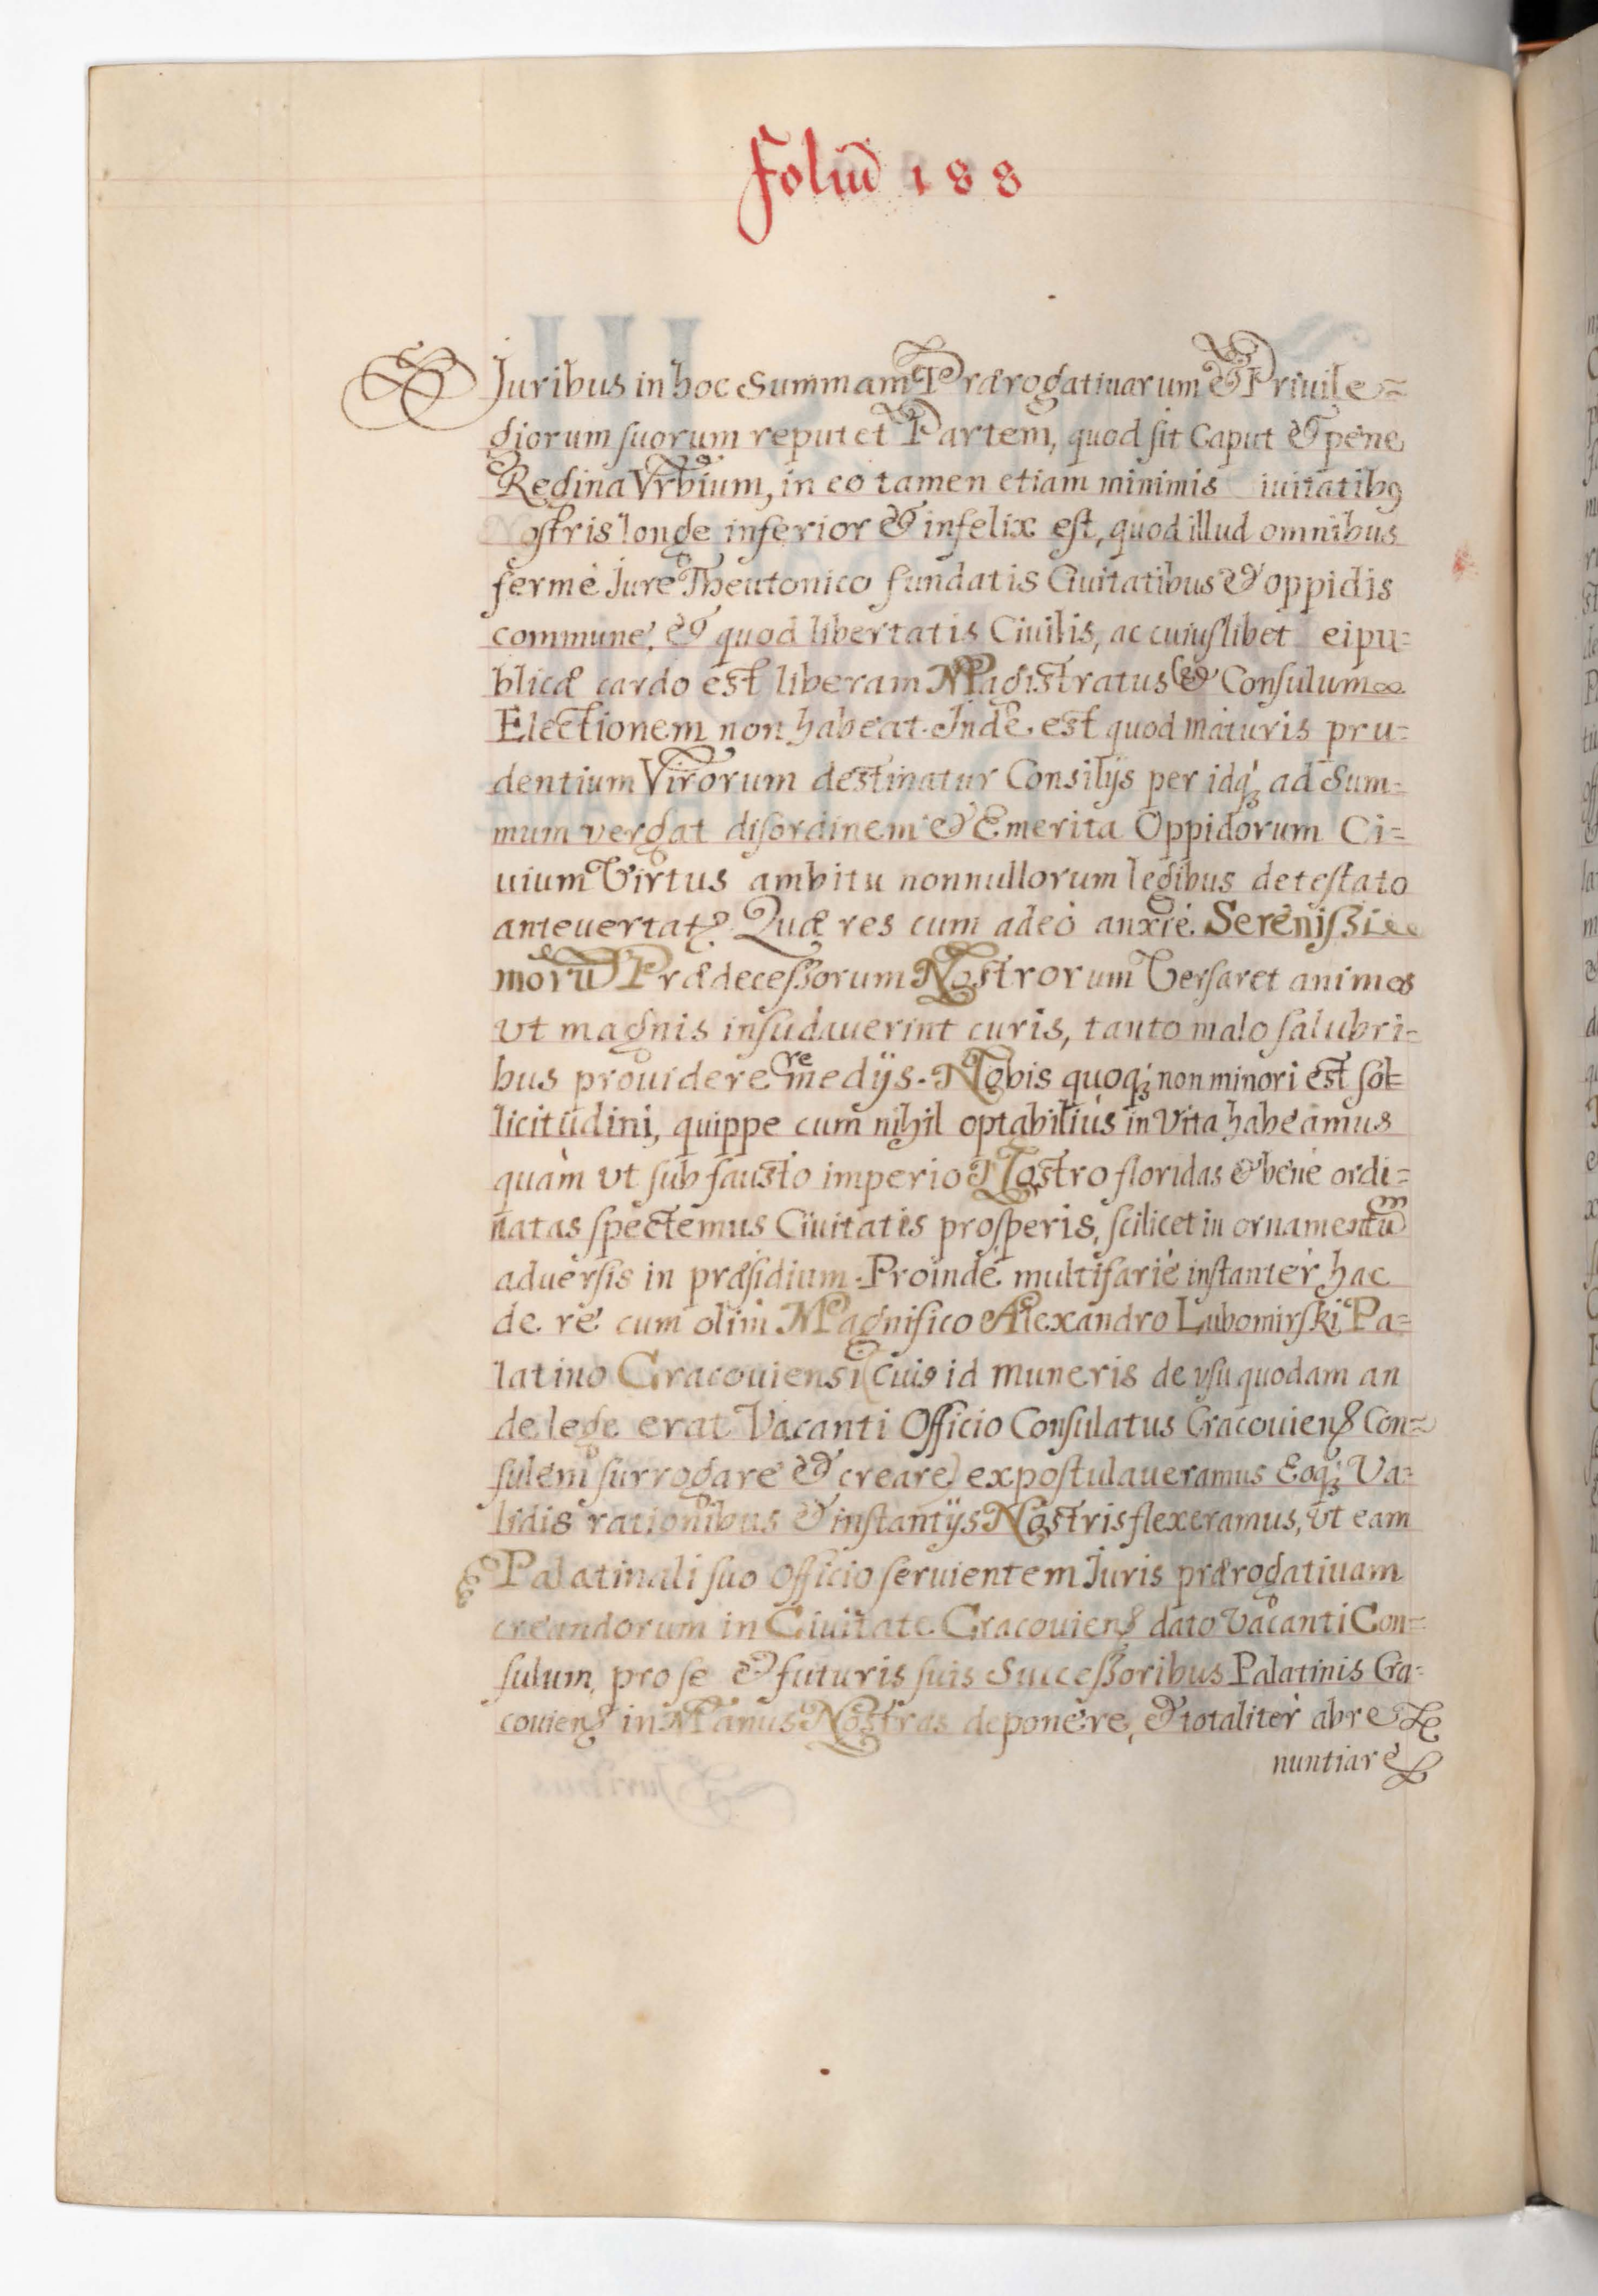 Foliū 188
Juribus in hoc Summam Prærogatiuarum & Priuile=
giorum suorum reputet Partem, quod sit Caput & pene
Regina Vrbium, in eo tamen etiam minimis iuitatibꝰ
Nostris longe inferior & infelix est, quod illud omnibus
fermè Jure Theutonico fundatis Ciuitatibus & oppidis
commune, & quod libertatis Ciuilis, ac cuiuslibet eipu=
blicæ cardo est liberam Magistratus & Consulum
Electionem non habeat. Inde est quod maturis pru=
dentium Virorum destinatur Consilijs per idq; ad Sum=
mum vergat disordinem & Emerita Oppidorum Ci=
uium Virtus ambitu nonnullorum legibus detestato
anteuertatꝰ. Quæ res cum adeò anxiè Serenißi
morū Prædeceßorum Nostrorum Versaret animos
vt magnis insudauerint curis, tanto malo salubri=
bus prouidere remedijs. Nobis quoq; non minori est sol=
licitudini, quippe cum nihil optabiliùs in Vita habeamus
quàm vt sub fausto imperio Nostro floridas & benè ordi=
natas spectemus Ciuitatis prosperis, scilicet in ornamentūm
aduersis in præsidium. Proinde multifariè instantèr hac
de re cum olim Magnifico Alexandro Lubomirski Pa=
latino Cracouiensi (cuiꝰ id muneris de vsu quodam an
de lege erat Vacanti Officio Consulatus Cracouienꝭ Con=
sulem surrogare & creare) expostulaueramus Eoq; Va=
lidis rationibus & instantijs Nostris flexeramus, vt eam
Palatinali suo Officio seruientem Juris prærogatiuam
creandorum in Ciuitate Cracouienꝭ dato Vacanti Con=
sulum, pro se & futuris suis Succeßoribus Palatinis Cra=
couienꝭ in Manus Nostras deponere, & totalitèr abre
nuntiare